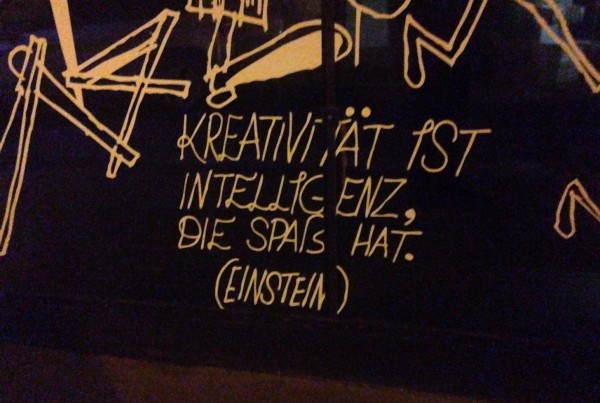 KREATIVITÄT IST
INTELLIGENZ,
DIE SPAß HAT.
(EINSTEIN)